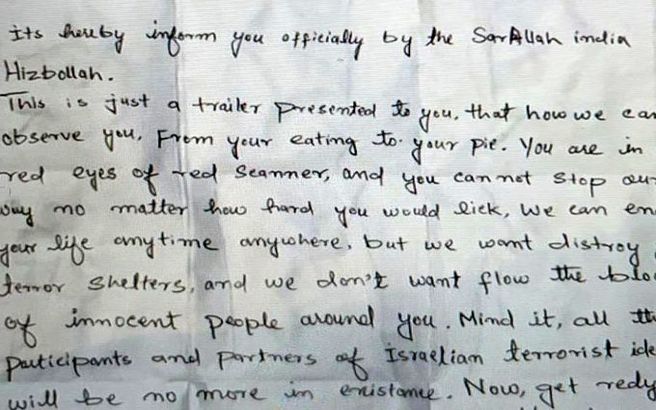 Its hereby inform you officially by the SarAllah india
Hizbollah.
This is just a trailer presented to you, that how we can
observe you, From your eating to your pie. You are in
red eyes of red Scanner, and you can not stop our
way no matter how hard you would lick, We can en
your life anytime anywhere, but we want distroy
terror Shelters, and we don't want flow the bloo
of innocent people around you. Mind it, all the
participants and partners of Israelian terrorist ide
will be no more in existance. Now, get redy